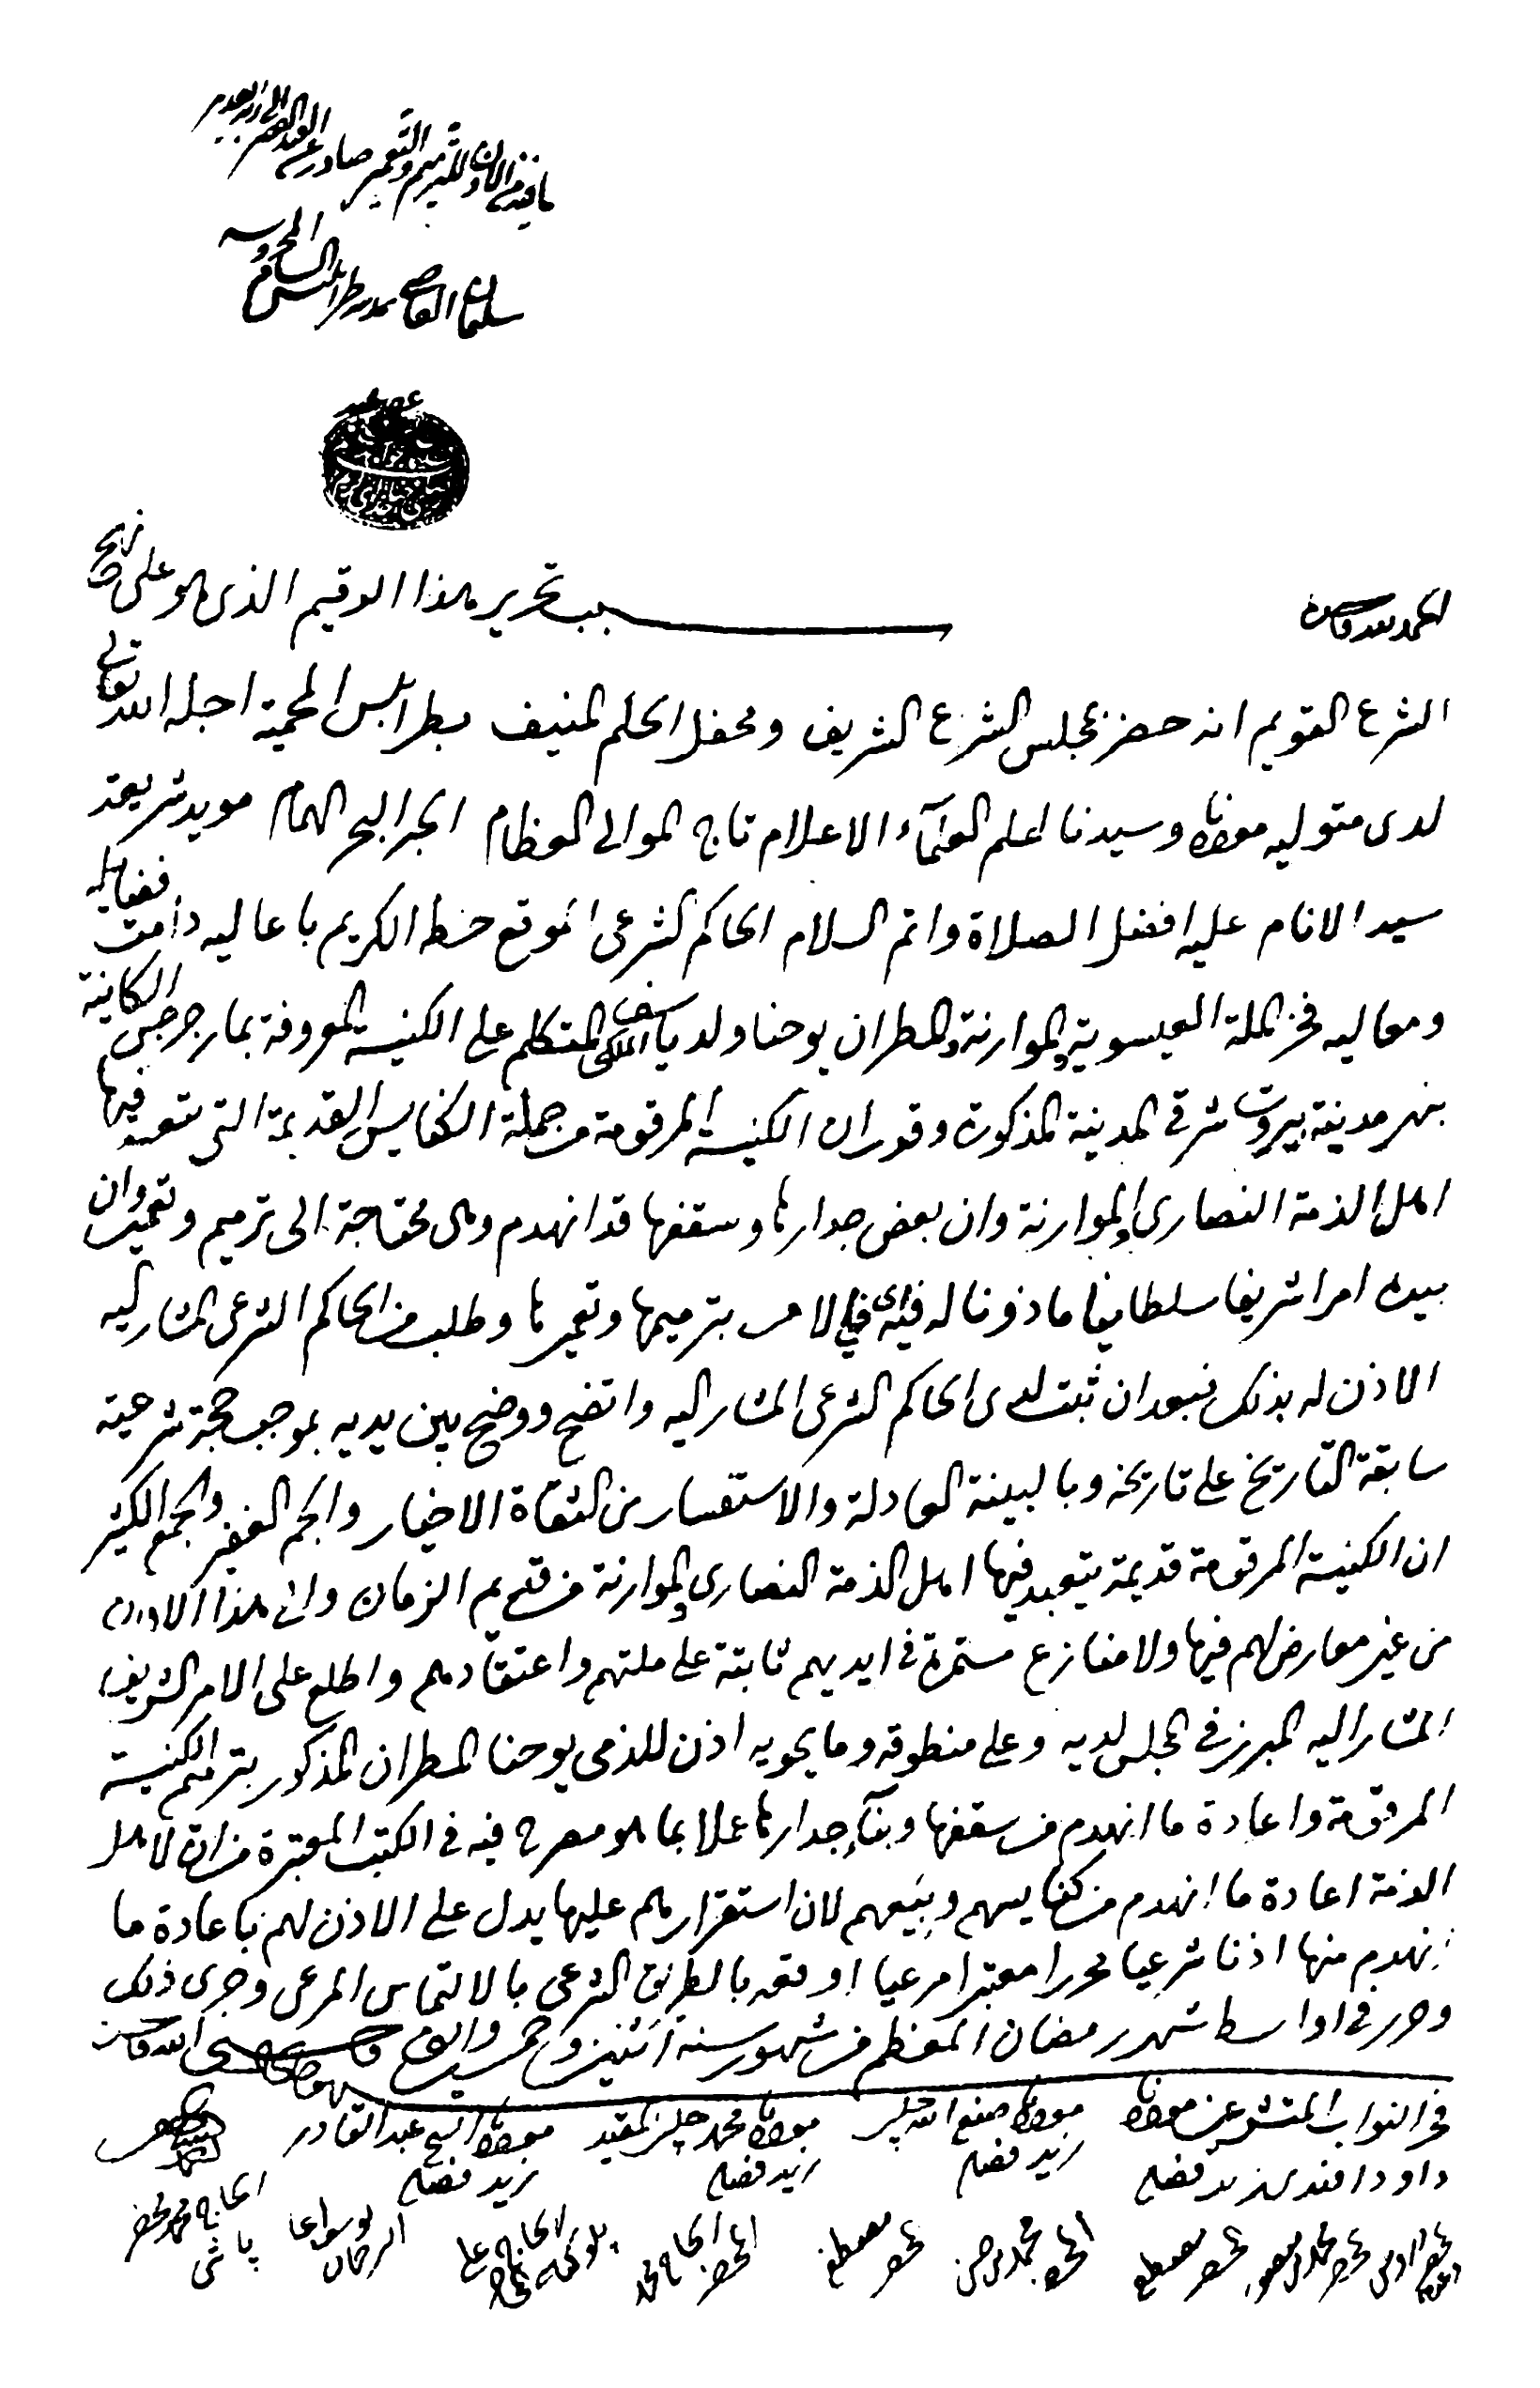 ما فيه من الاذن للترميم والتعمير صادر عن العبد الفقير اليه
سليمان القاضي بمدينة طرابلس الشام المحروسة
الحمد لله
سبب تحرير هذا الرقيم الذي هو على نهج
الشرع القويم انه حضر بمجلس الشرع الشريف ومحفل الحكم المنيف بطرابلس المحمية اجله الله تعالى
لدى متوليه مولانا وسيدنا اعلم العلمآء الاعلام تاج الموالي العظام الحبر البحر الهمام مويد شريعة
سيد الانام عليه افضل الصلاة واتم السلام الحاكم الشرعي الموقع خطه الكريم باعاليه دامت فضايله
ومعاليه فخر الملة العيسوية والموارنة المطران يوحنا ولد المتكلم على الكنيسة المعروفة بمار جرجس الكاينة
بنهر مدينة بيروت شرقي المدينة المذكورة وقرر ان الكنيسة المرقومة من جملة الكنايس القديمة التي تتعبد فيها
اهل الذمة النصارى والموارنة وان بعض جدارها وسقفها قد انهدم وهي محتاجة الى ترميم وتعمير وان
بيده امرا شريفا سلطانيا ماذونا له فيه بترميمها وتعميرها وطلب من الحاكم الشرعي المشار اليه
الاذن له بذلك فبعد ان ثبت لدى الحاكم الشرعي المشار اليه واتضح ووضح بين يديه بموجب حجة شرعية
سابقة التاريخ على تاريخه وبالبينة العادلة والاستفسار من الثقاة الاخيار والجم الغفير والجمع الكثير
ان الكنيسة المرقومة قديمة يتعبد فيها اهل الذمة النصارى والموارنة من قديم الزمان والى هذا الاوان
من غير معارض لهم فيها ولا منازع مستمرة في ايديهم ثابتة على ملتهم واعتقادهم واطلع على الامر الشريف
المشار اليه المبرز في المجلس لديه وعلى منطوقه وما يحويه اذن للذمي يوحنا المطران المذكور بترميم الكنيسة
المرقومة واعادة ما انهدم من سقفها وبنآء جدارها عملا بما هو مصرح فيه في الكتب المعتبرة من ان لاهل
الذمة اعادة ما انهدم من كنايسهم وبيعهم لان استقرارهم عليها يدل على الاذن لهم باعادة ما
انهدم منها اذنا شرعيا محررا معتبرا مرعيا اوقعه بالطريق الشرعي بالالتماس المرعي وجرى ذلك
وحرر في اواسط شهر رمضان المعظم من شهور سنة اثنين وخمسين والف
فخر النواب المتشرعين مولانا داود افندي زيد فضله
مولانا صنع الله چلبي زيد فضله
مولانا محمد چلبي المقيد زيد فضله
مولانا الشيخ عبد القادر زيد فضله